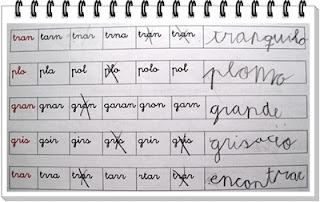 tran tarn tnar trna tran tran tranquilo
plo pla pol plo polo pol plomo
gran gnar gran garan gron garn grande
gris gsir girs gris grir gris grisacio
tran trna tran tarr rtar tran encontrar